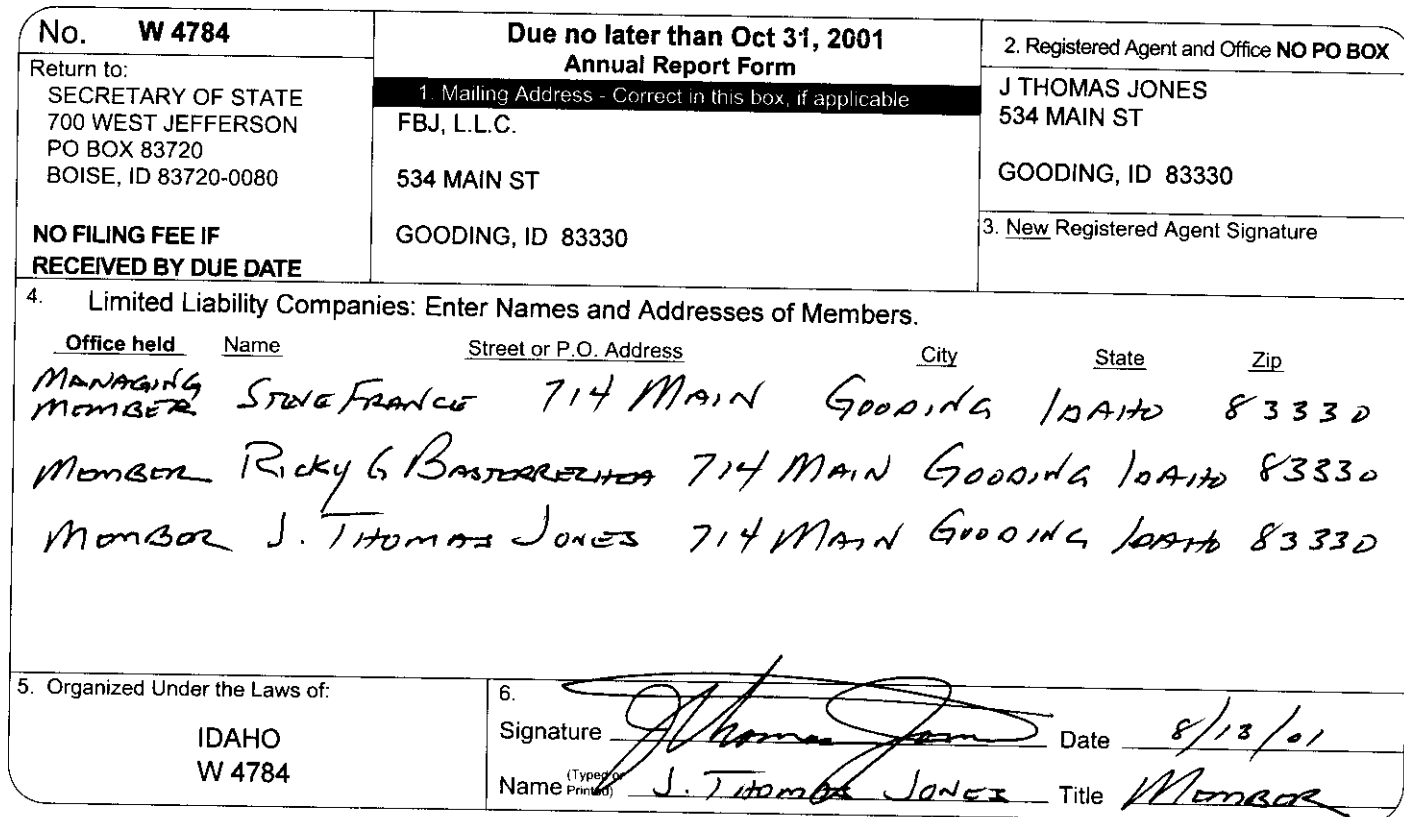 No. W 4784
Return to:
SECRETARY OF STATE
700 WEST JEFFERSON
PO BOX 83720
BOISE, ID 83720-0080
NO FILING FEE IF
RECEIVED BY DUE DATE
Due no later than Oct 31, 2001
Annual Report Form
1. Mailing Address - Correct in this box, if applicable
FBJ, L.L.C.
534 MAIN ST
GOODING, ID 83330
2. Registered Agent and Office NO PO BOX
J THOMAS JONES
534 MAIN ST
GOODING, ID 83330
3. New Registered Agent Signature
4. Limited Liability Companies: Enter Names and Addresses of Members.
Office held Name Street or P.O. Address City State Zip
MANAGING
MEMBER STEVE FRANCE 714 MAIN GOODING IDAHO 83330
MEMBER Ricky G BASTERRECHEA 714 MAIN GOODING IDAHO 83330
MEMBER J. THOMAS JONES 714 MAIN GOODING IDAHO 83330
5. Organized Under the Laws of:
IDAHO
W 4784
6.
Signature J Thomas Jones Date 8/13/01
Name (Typed or Printed) J. THOMAS JONES Title MEMBER